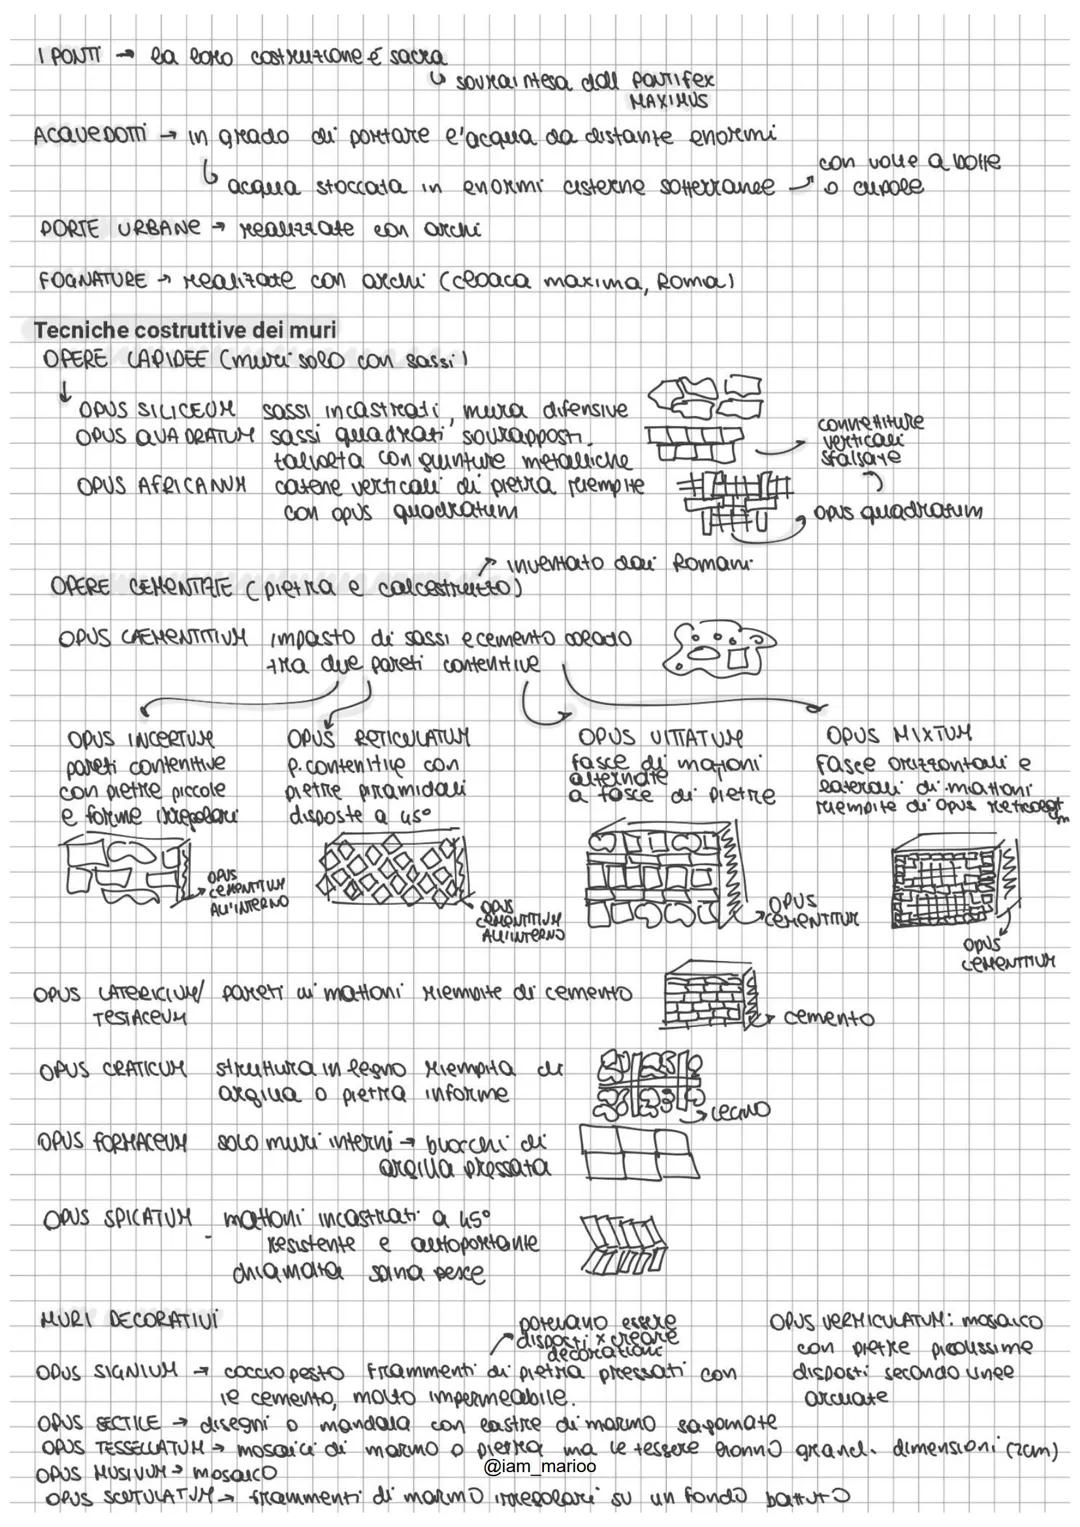 I PONTI → la loro costruzione é sacra
↳ sovraintesa dal PONTIFEX
MAXIMUS
ACQUEDOTTI → in grado di portare l'acqua da distante enormi
↳ acqua stoccata in enormi cisterne sotterranee → con volte a botte
o cupole
PORTE URBANE → realizzate con archi
FOGNATURE → realizate con archi (cloaca maxima, Roma)
Tecniche costruttive dei muri
OPERE LAPIDEE (muri solo con sassi)
↓
OPUS SILICEUM sassi incastrati, mura difensive
OPUS QUADRATUM sassi quadrati sovrapposti
talvolta con giunture metalliche
connettiture
verticali
sfalsate
OPUS AFRICANUM catene verticali di pietra riempite
con opus quadratum
opus quadratum
→ inventato dai Romani
OPERE CEMENTIZIE (pietra e calcestruzzo)
OPUS CAEMENTITIUM impasto di sassi e cemento colato
tra due pareti contenitive
OPUS INCERTUM
pareti contenitive
con pietre piccole
e forme irregolari
OPUS
CEMENTITIUM
ALL'INTERNO
OPUS RETICULATUM
p. contenitive con
pietre piramidali
disposte a 45°
OPUS
CEMENTITIUM
ALL'INTERNO
OPUS VITTATUM
fasce di mattoni
alternate
a fasce di pietre
OPUS
CEMENTITIUM
OPUS MIXTUM
Fasce orizzontali e
laterali di mattoni
riempite di opus reticolatum
OPUS
CEMENTITIUM
OPUS LATERICIUM/ pareti di mattoni riempite di cemento
TESTACEUM
→ cemento
OPUS CRATICUM struttura in legno riempita di
argilla o pietra informe
→ LEGNO
OPUS FORMACEUM solo muri interni → blocchi di
argilla pressata
OPUS SPICATUM mattoni incastrati a 45°
resistente e autoportante
chiamata spina pesce
MURI DECORATIVI
potevano essere
disposti x creare
decorazioni
OPUS SIGNIUM → coccio pesto frammenti di pietra pressati con
le cemento, molto impermeabile.
OPUS VERMICULATUM: mosaico
con pietre piccolissime
disposti secondo linee
arcuate
OPUS SECTILE → disegni o mandala con lastre di marmo sagomate
OPUS TESSELLATUM → mosaici di marmo o pietra ma le tessere hanno grandi dimensioni (2cm)
OPUS MUSIVUM → mosaico
@iam_marioo
OPUS SCUTULATUM → frammenti di marmo irregolari su un fondo battuto